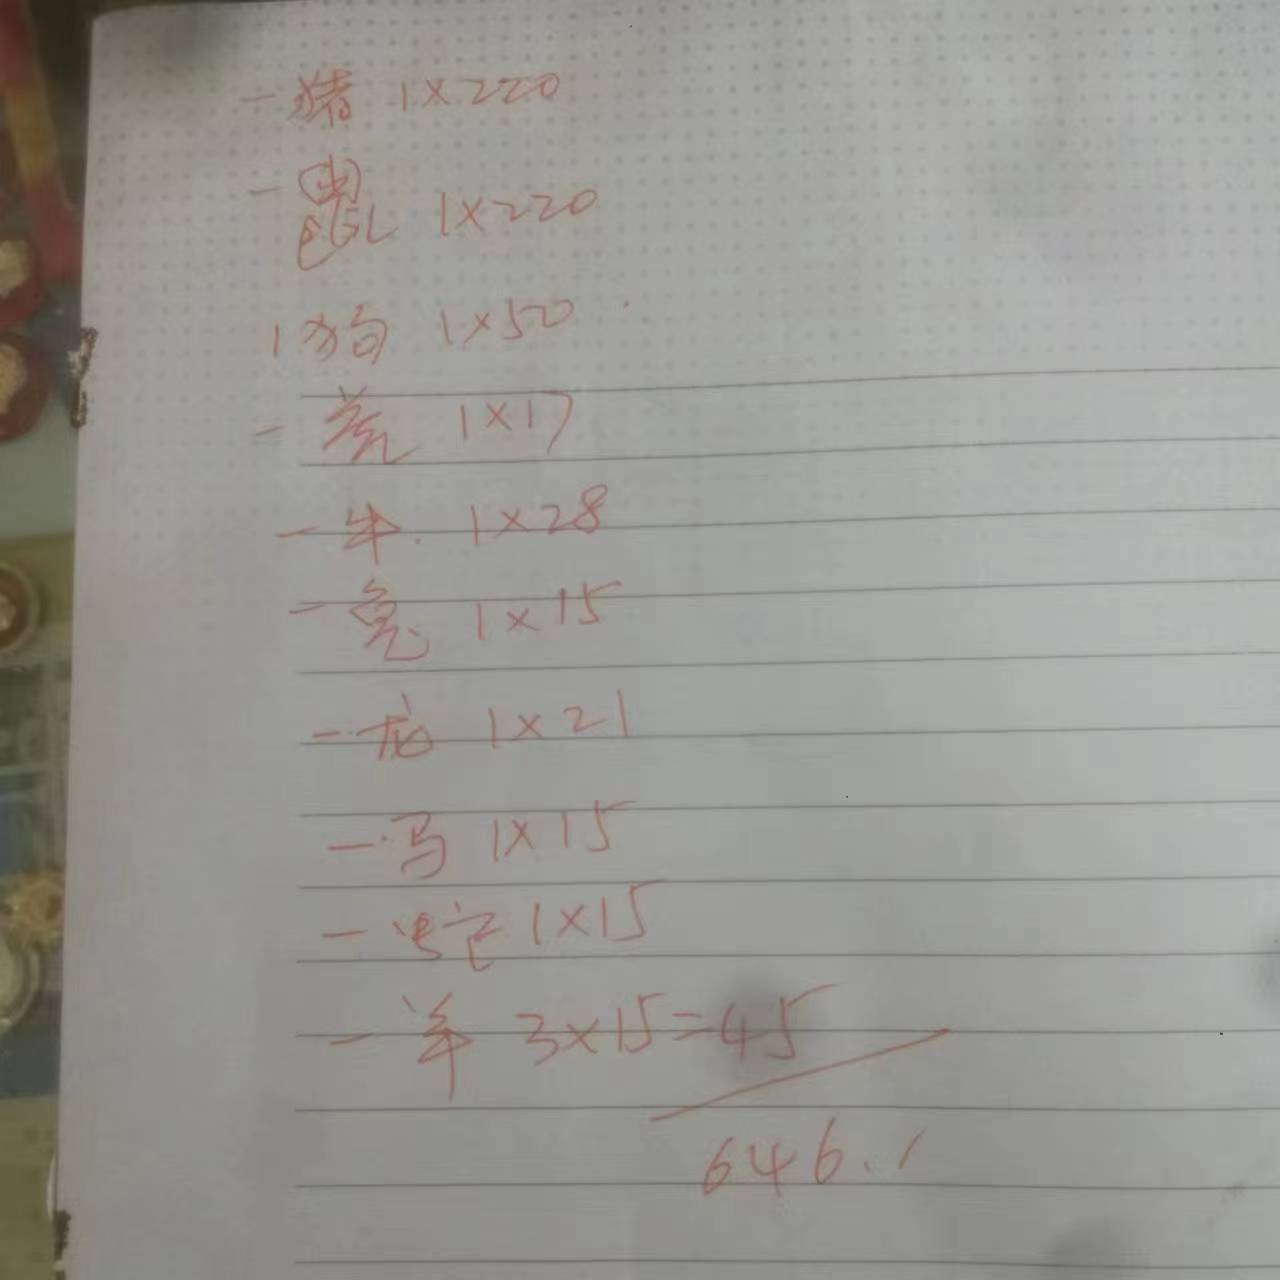 一猪 1×220
一鼠 1×220
1狗 1×50
一 1×17
一牛. 1×28
一兔 1×15
一龙 1×21
一马 1×15
一蛇 1×15
一羊 3×15=45
646.